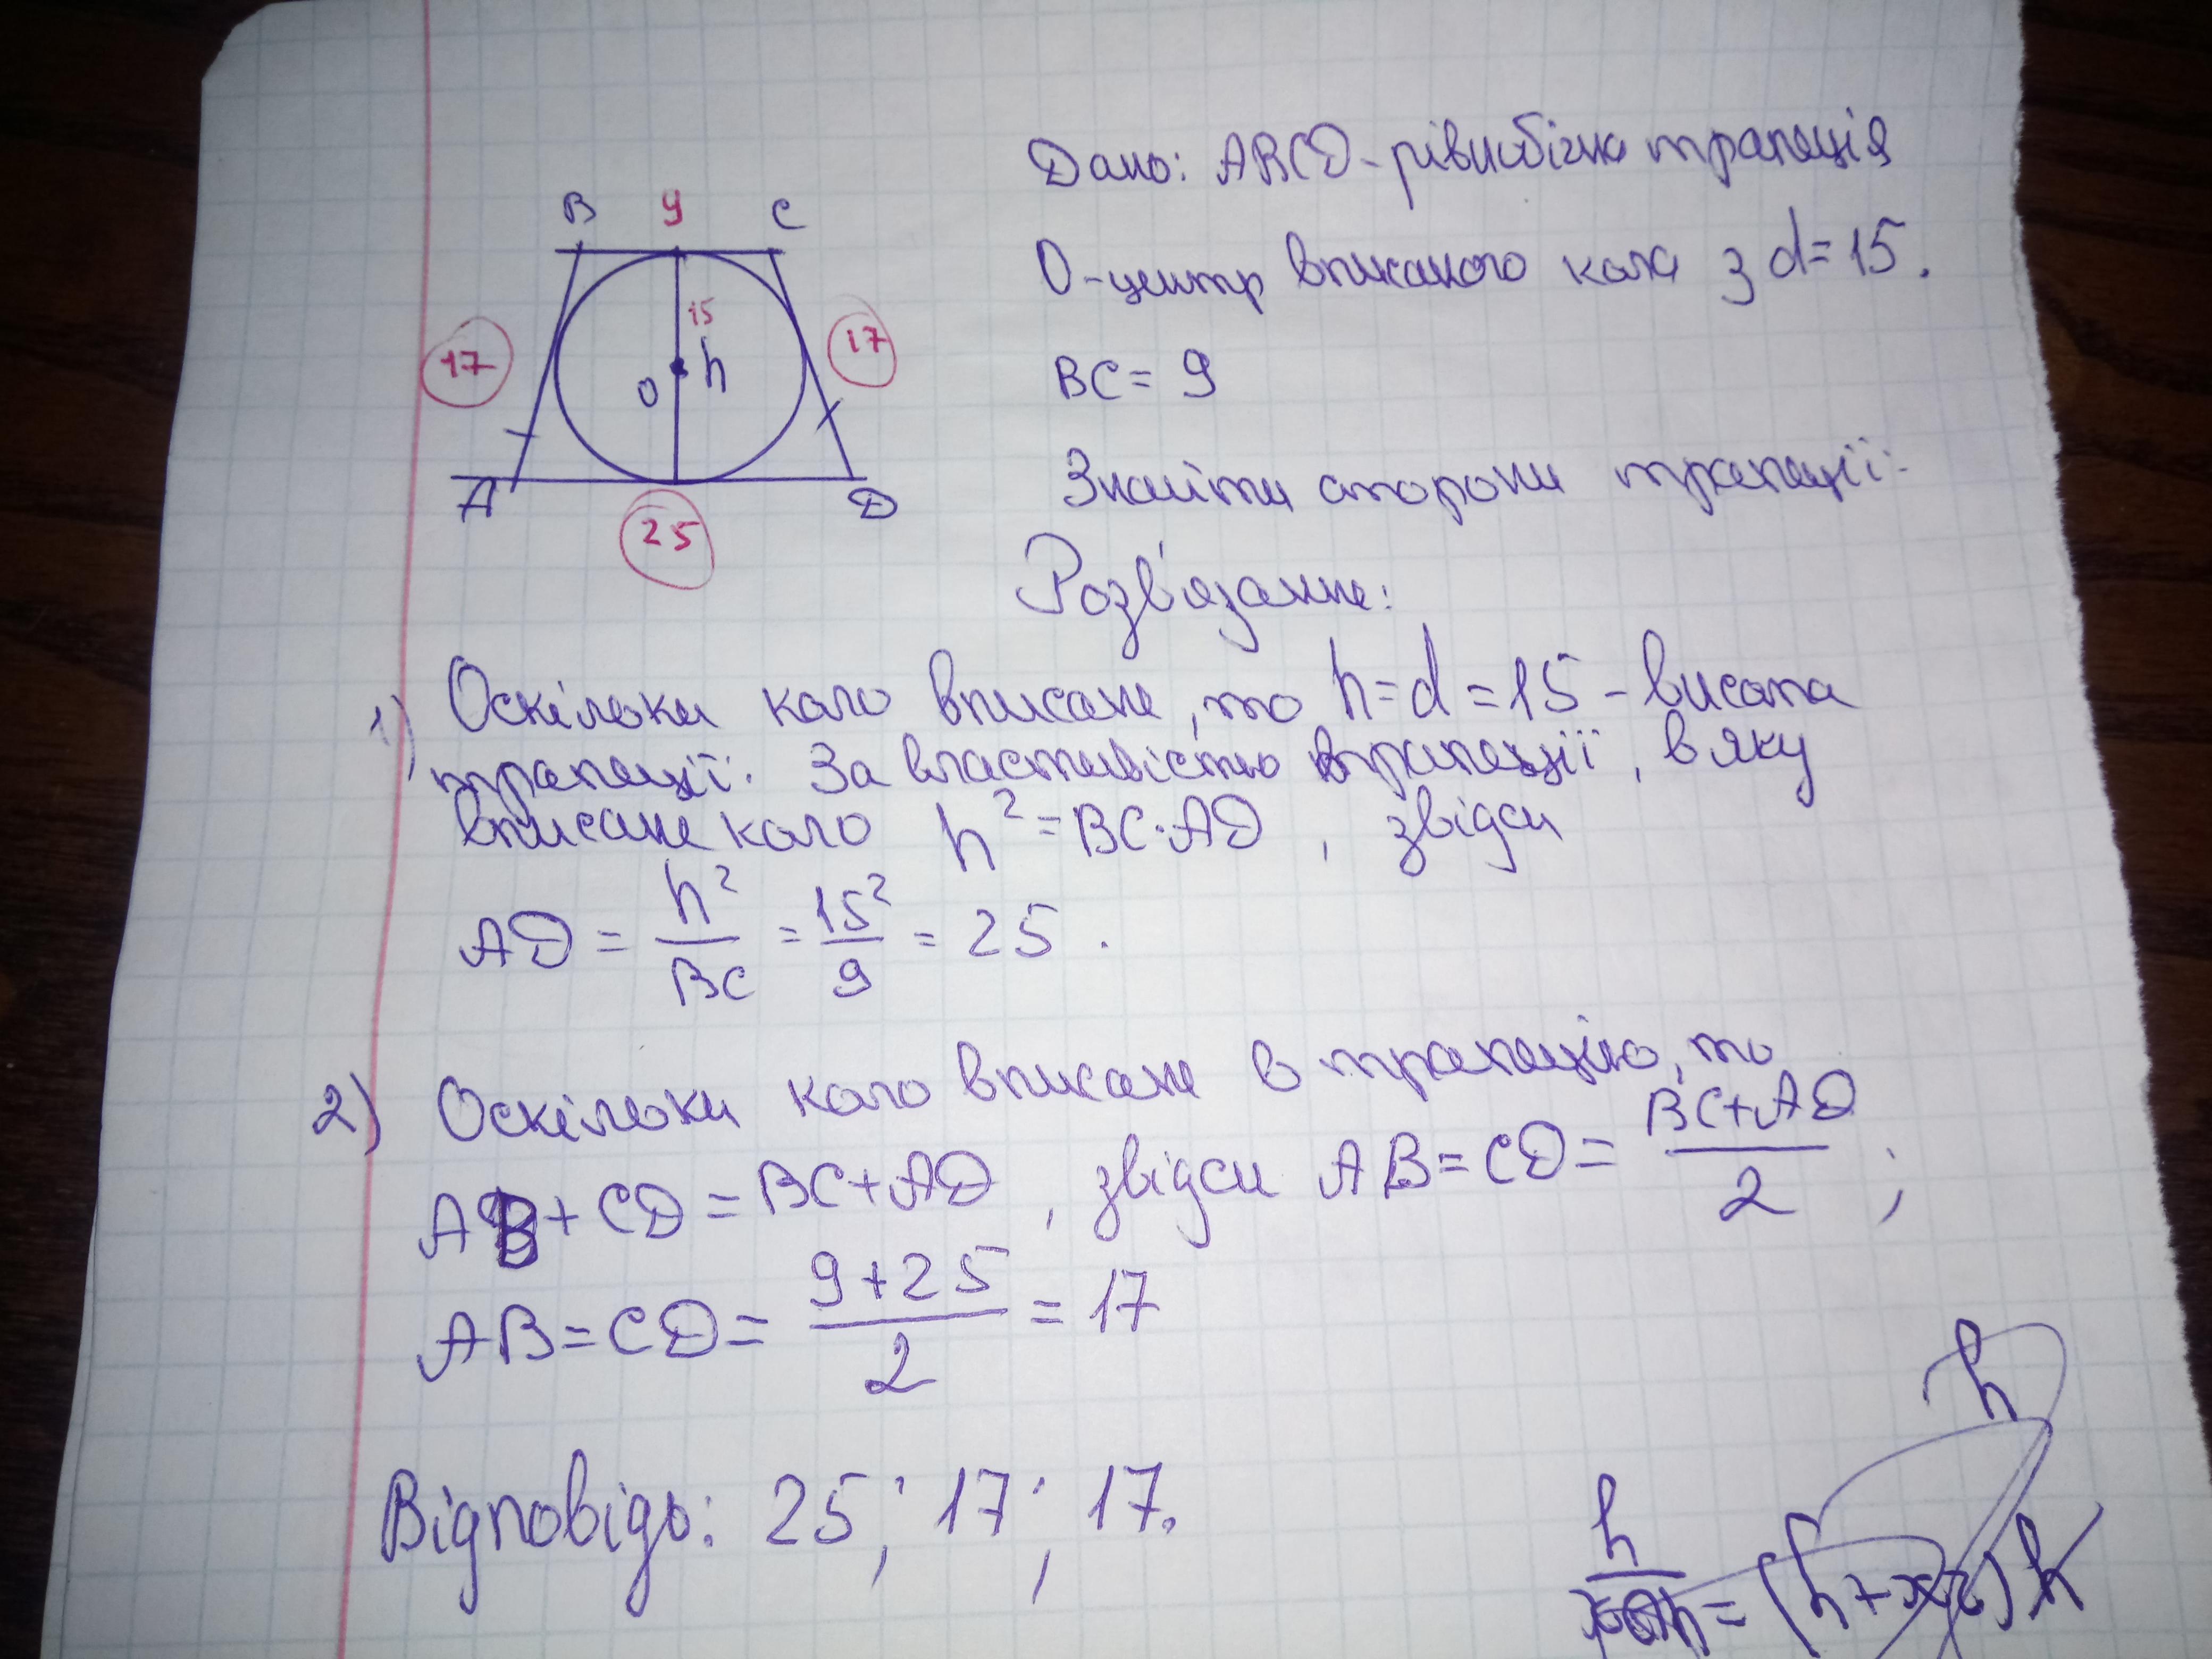 Дано: ABCD - рівнобічна трапеція
O - центр вписаного кола з d = 15.
BC = 9
Знайти сторони трапеції.
B 9 C
17 15 17
O h
A D
25
Розв'язання:
1) Оскільки коло вписане, то h = d = 15 - висота
трапеції. За властивістю трапеції, в яку
вписане коло h² = BC·AD, звідси
AD = h²/BC = 15²/9 = 25.
2) Оскільки коло вписане в трапецію, то
AB + CD = BC + AD, звідси AB = CD = (BC + AD)/2;
AB = CD = (9 + 25)/2 = 17
Відповідь: 25; 17; 17.
h